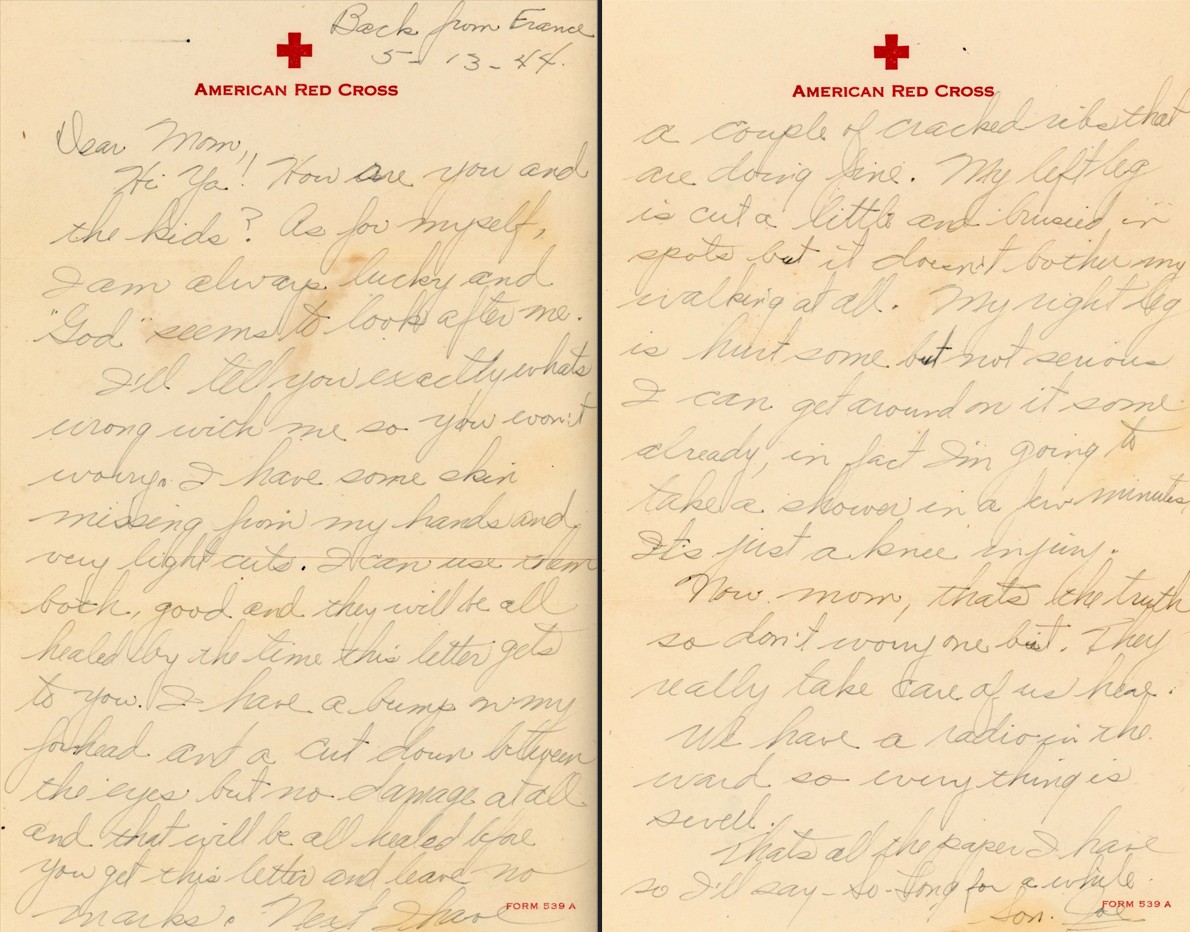 Back from France
5-13-44.
AMERICAN RED CROSS
Dear Mom,,
Hi Ya! How are you and
the kids? As for myself,
I am always lucky and
"God" seems to look after me.
I'll tell you exactly whats
wrong with me so you won't
worry. I have some skin
missing from my hands and
very light cuts. I can use them
both, good and they will be all
healed by the time this letter gets
to you. I have a bump on my
forhead and a cut down between
the eyes but no damage at all
and that will be all healed before
you get this letter and leave no
marks. Next I have
FORM 539 A
AMERICAN RED CROSS
a couple of cracked ribs that
are doing fine. My left leg
is cut a little and brusied in
spots but it doesn't bother my
walking at all. My right leg
is hurt some but not serious
I can get around on it some
already, in fact I'm going to
take a shower in a few minutes,
It's just a knee injury.
Now mom, thats the truth
so don't worry one bit. They
really take care of us here.
We have a radio in the
ward so everything is
swell.
Thats all the paper I have
so I'll say - So-Long for a while.
Son. Joe
FORM 539 A